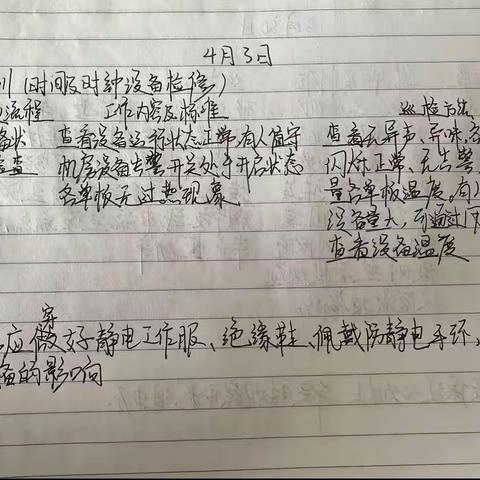 4月3日
川（时间及时钟设备检修）
流程 工作内容及标准 巡检方法
备状 查看设备运行状态正常，有人值守 查看无异声、异味、各
检查 机房设备告警开关处于开启状态 闪烁正常、无告警
各单板无过热现象 量各单板温度。有人
设备量大，可通过
查看设备温度
穿
应做好静电工作服、绝缘鞋、佩戴防静电手环，
备的影响